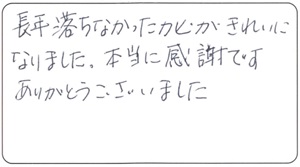 長年落ちなかったカビがきれいに
なりました。本当に感謝です
ありがとうございました